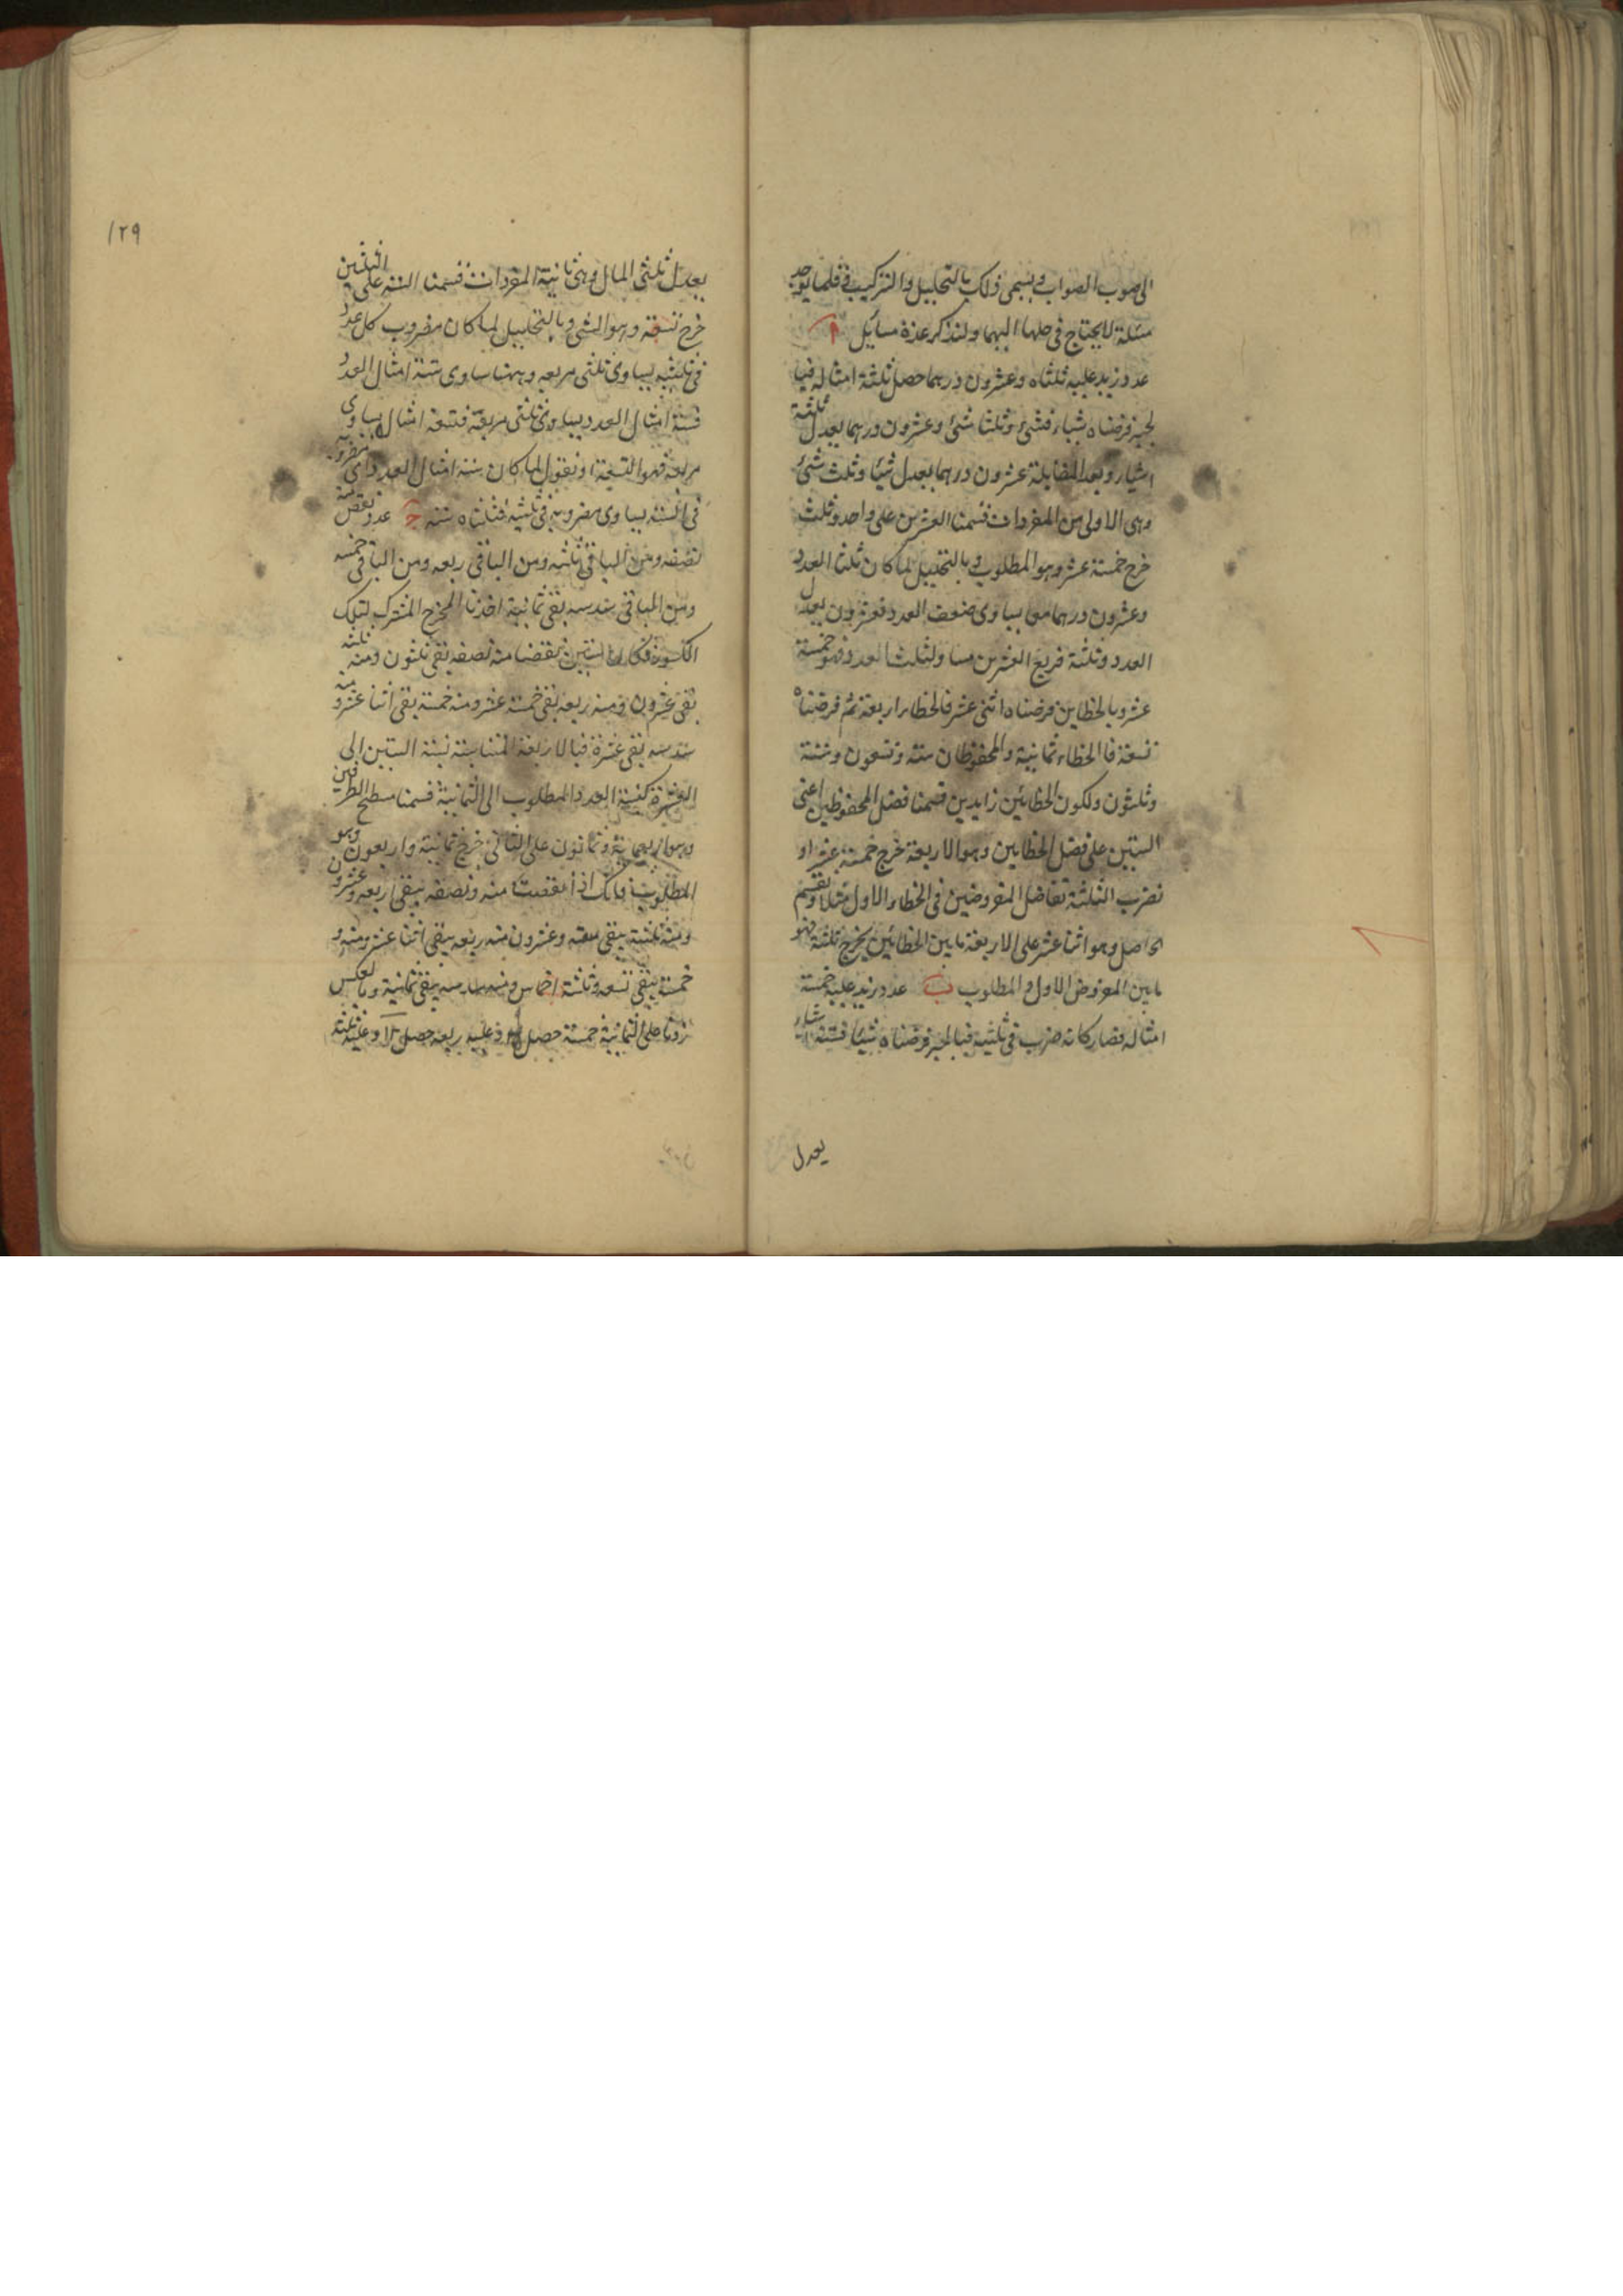 الى صوب الصواب ويسمى ذلك بالتحليل والتركيب فقلما يوجد
مسئلة لا يحتاج فى حلها اليهما ولنذكر عدة مسايل ا
عدد زيد عليه ثلثاه وعشرون درهما حصل ثلثة امثاله فبا
لجبر فرضناه شياء فشئ وثلثا شئ وعشرون درهما يعدل ثلثة
اشياء وبعد المقابلة عشرون درهما يعدل شيئا وثلث شئ
وهى الاولى من المفردات قسمنا العشرين على واحد وثلث
خرج خمسة عشر وهو المطلوب وبالتحليل لما كان ثلثا العدد
وعشرون درهما معا يساوى ضعف العدد فعشرون يعدل
العدد وثلثه فربع العشرين مساو لثلث العدد فهو خمسة
عشر وبالخطاين فرضناه اثنى عشر فالخطاء اربعة ثم فرضناه
تسعة فالخطاء ثمانية والمحفوظان ستة وتسعون وستة
وثلثون ولكون الخطائين زايدين قسمنا فضل المحفوظين اعنى
الستين على فضل الخطايين وهو الاربعة خرج خمسة عشر او
نضرب الثلثة تفاضل المفروضين فى الخطاء الاول مثلا ونقسم
الحاصل وهو اثنا عشر على الاربعة ما بين الخطائين يخرج ثلثة فهو
ما بين المفروض الاول والمطلوب ب عدد زيد عليه خمسة
امثاله فصار كانه ضرب فى ثلثيه فبالجبر فرضناه شيئا فستة اشياء
يعدل
١٢٩
يعدل ثلثى المال وهى ثانية المفردات قسمنا الستة على الثلثين
خرج تسعة وهو الشى وبالتحليل لما كان مضروب كل عدد
فى ثلثيه يساوى ثلثى مربعه وههنا ساوى ستة امثال العدد
فستة امثال العدد يساوى ثلثى مربعه فتسعة امثاله يساوى
مربعه فهو التسعة او نقول لما كان ستة امثال العدد اى مضروبه
فى الستة يساوى مضروبه فى ثلثيه فثلثاه ستة ج عدد نقص منه
نصفه ومن الباقى ثلثه ومن الباقى ربعه ومن الباقى خمسه
ومن الباقى سدسه بقى ثمانية اخذنا المخرج المشترك لتلك
الكسور فكان الستين نقصنا منه نصفه بقى ثلثون ومنه ثلثه
بقى عشرون ومنه ربعه بقى خمسة عشر ومنه خمسة بقى اثنا عشر ومنه
سدسه بقى عشرة فبالاربعة المتناسبة نسبة الستين الى
العشرة كنسبة العدد المطلوب الى الثمانية قسمنا مسطح الطرفين
وهو اربعماية وثمانون على الثانى خرج ثمانية واربعون وهو
المطلوب فانك اذا نقصت منه ونصفه يبقى اربعه وعشرون
ومنه ثلثه يبقى ستة عشر ومنه ربعه يبقى اثنا عشر ومنه
خمسه يبقى تسعه وثلثة اخماس ومنه سدسه يبقى ثمانية وبالعكس
زدنا على الثمانية خمسه حصل وعليه ربعه حصل وعليه ثلثه